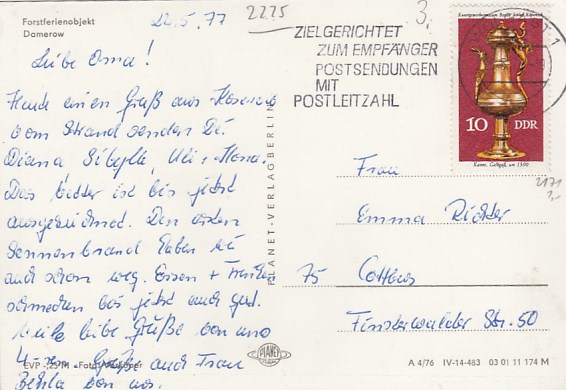 Forstferienobjekt
Damerow
22.5.77
2225
3.
Liebe Oma!
Heute einen Gruß aus
vom Strand senden Dir
Diana Sibylle, Uli + Mona.
Das Wetter ist bis jetzt
ausgezeichnet. Den ersten
Sonnenbrand haben wir
auch schon weg. Essen + Trinken
schmecken bis jetzt auch gut.
Viele liebe Grüße von uns
4
auch Frau
von uns.
EVP -,25 M · Foto:
PLANET-VERLAG BERLIN
PLANET
ZIELGERICHTET
ZUM EMPFÄNGER
POSTSENDUNGEN
MIT
POSTLEITZAHL
10 DDR
Kanne, Goldgefäß, um 1500
2171
Frau
Emma Richter
75 Cottbus
Finsterwalder Str. 50
A 4/76 IV-14-483 03 01 11 174 M